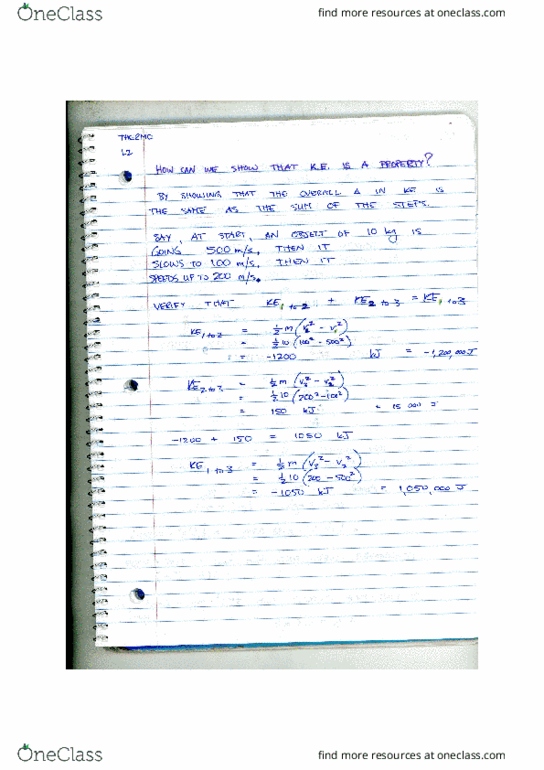 OneClass
find more resources at oneclass.com
L2
HOW CAN WE SHOW THAT K.E. IS A PROPERTY?
BY SHOWING THAT THE OVERALL Δ IN KE IS
THE SAME AS THE SUM OF THE STEPS.
SAY, AT START, AN OBJECT OF 10 kg IS
GOING 500 m/s, THEN IT
SLOWS TO 100 m/s, THEN IT
SPEEDS UP TO 200 m/s.
VERIFY THAT KE₁ to 2 + KE₂ to 3 = KE₁ to 3
KE₁ to 2 = ½ m (V₂² - V₁²)
= ½ 10 (100² - 500²)
= -1200 kJ = -1,200,000J
KE₂ to 3 = ½ m (V₃² - V₂²)
= ½ 10 (200² - 100²)
= 150 kJ = 15 000 J
-1200 + 150 = 1050 kJ
KE₁ to 3 = ½ m (V₃² - V₁²)
= ½ 10 (200 - 500²)
= -1050 kJ = 1,050,000 J
OneClass
find more resources at oneclass.com